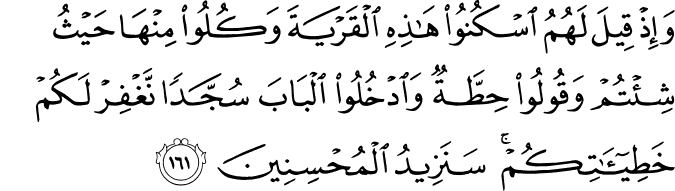 وَإِذۡ قِيلَ لَهُمُ ٱسۡكُنُواْ هَٰذِهِ ٱلۡقَرۡيَةَ وَكُلُواْ مِنۡهَا حَيۡثُ
شِئۡتُمۡ وَقُولُواْ حِطَّةٞ وَٱدۡخُلُواْ ٱلۡبَابَ سُجَّدٗا نَّغۡفِرۡ لَكُمۡ
خَطِيٓـَٰٔتِكُمۡۚ سَنَزِيدُ ٱلۡمُحۡسِنِينَ ١٦١